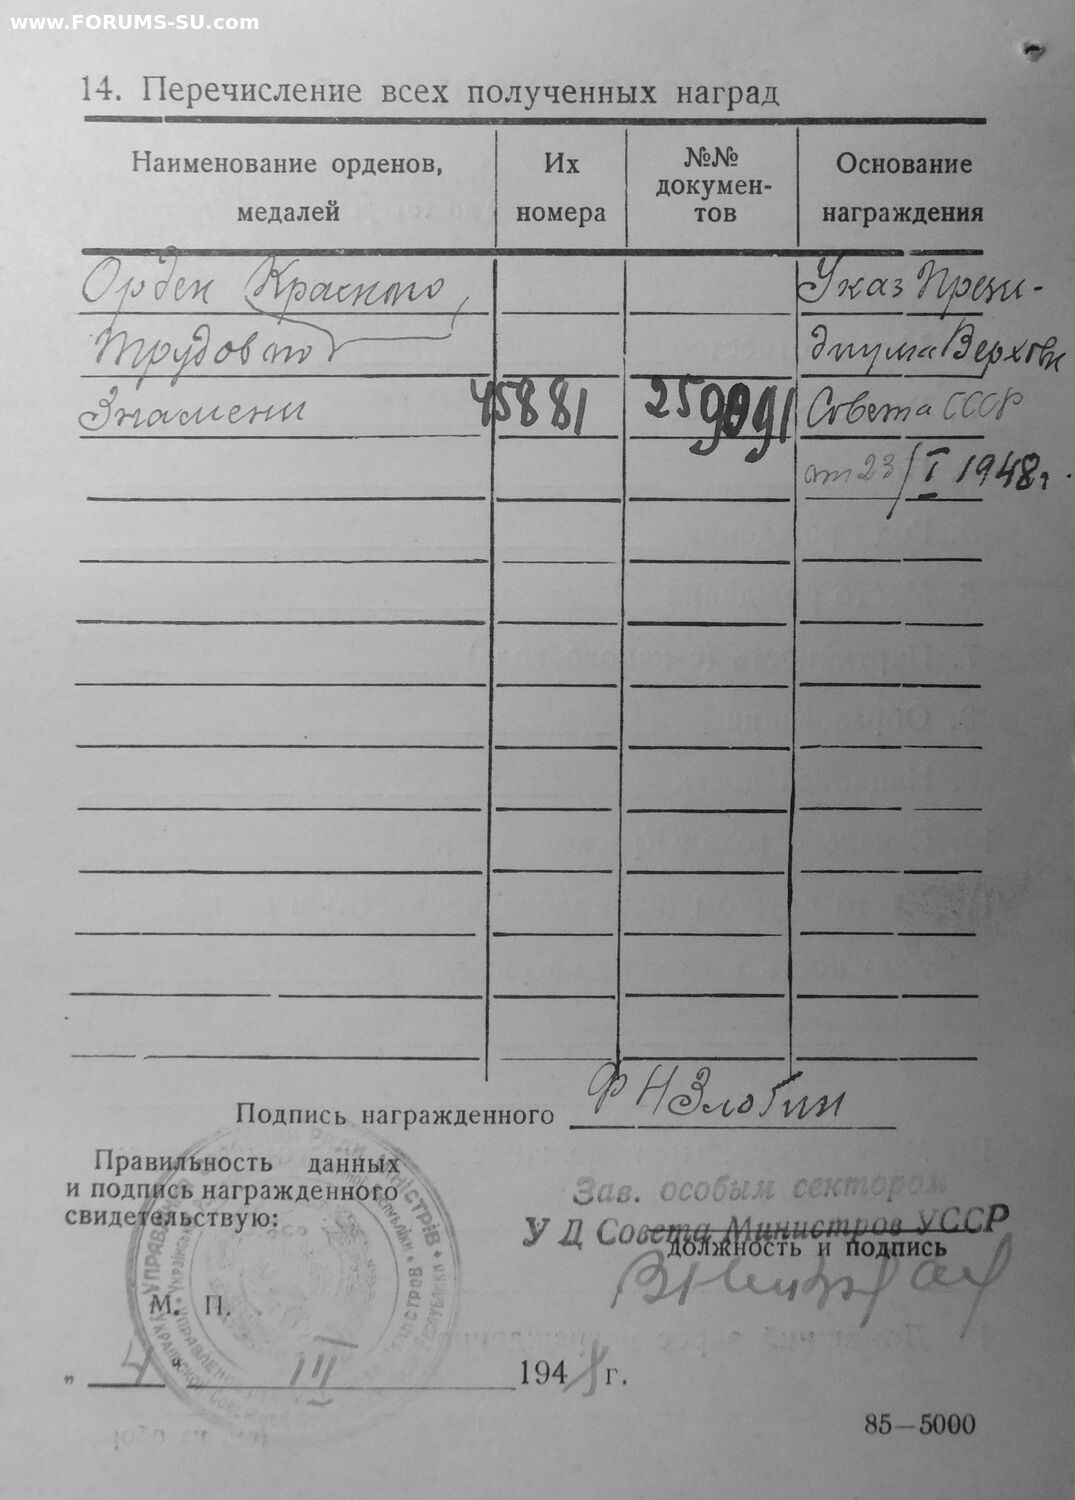 www.FORUMS-SU.com
14. Перечисление всех полученных наград
Наименование орденов, медалей
Их номера
№№ докумен-
тов
Основание награждения
Орден Красного
Трудового
Знамени 45881
Указ Прези-
диума Верховн
Совета СССР
от 23/I 1948г.
Подпись награжденного Ф Н Злобин
Правильность данных
и подпись награжденного
свидетельствую:
Зав. особым сектором
У Д Совета Министров УССР
должность и подпись
М. П.
„ 4 " III 1948 г.
85—5000